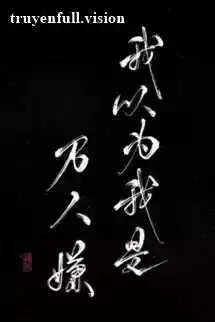 truyenfull.vision
我以为我是
万人嫌